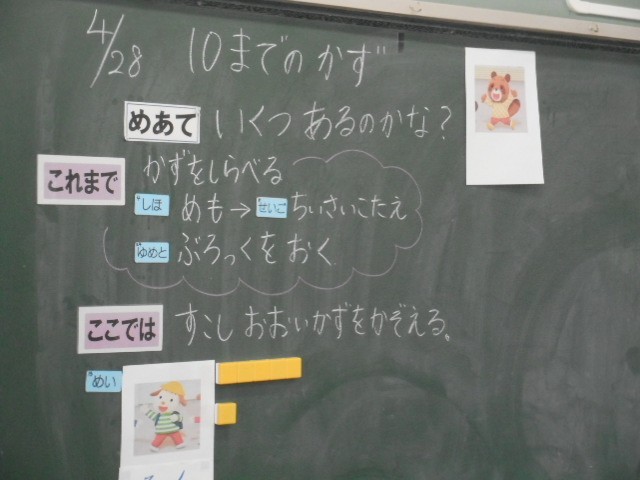 4/28 10までのかず
めあて いくつあるのかな?
これまで かずをしらべる
しほ めも→せいご ちいさいこたえ
ゆめと ぶろっくをおく
ここでは すこしおおいかずをかぞえる。
めい